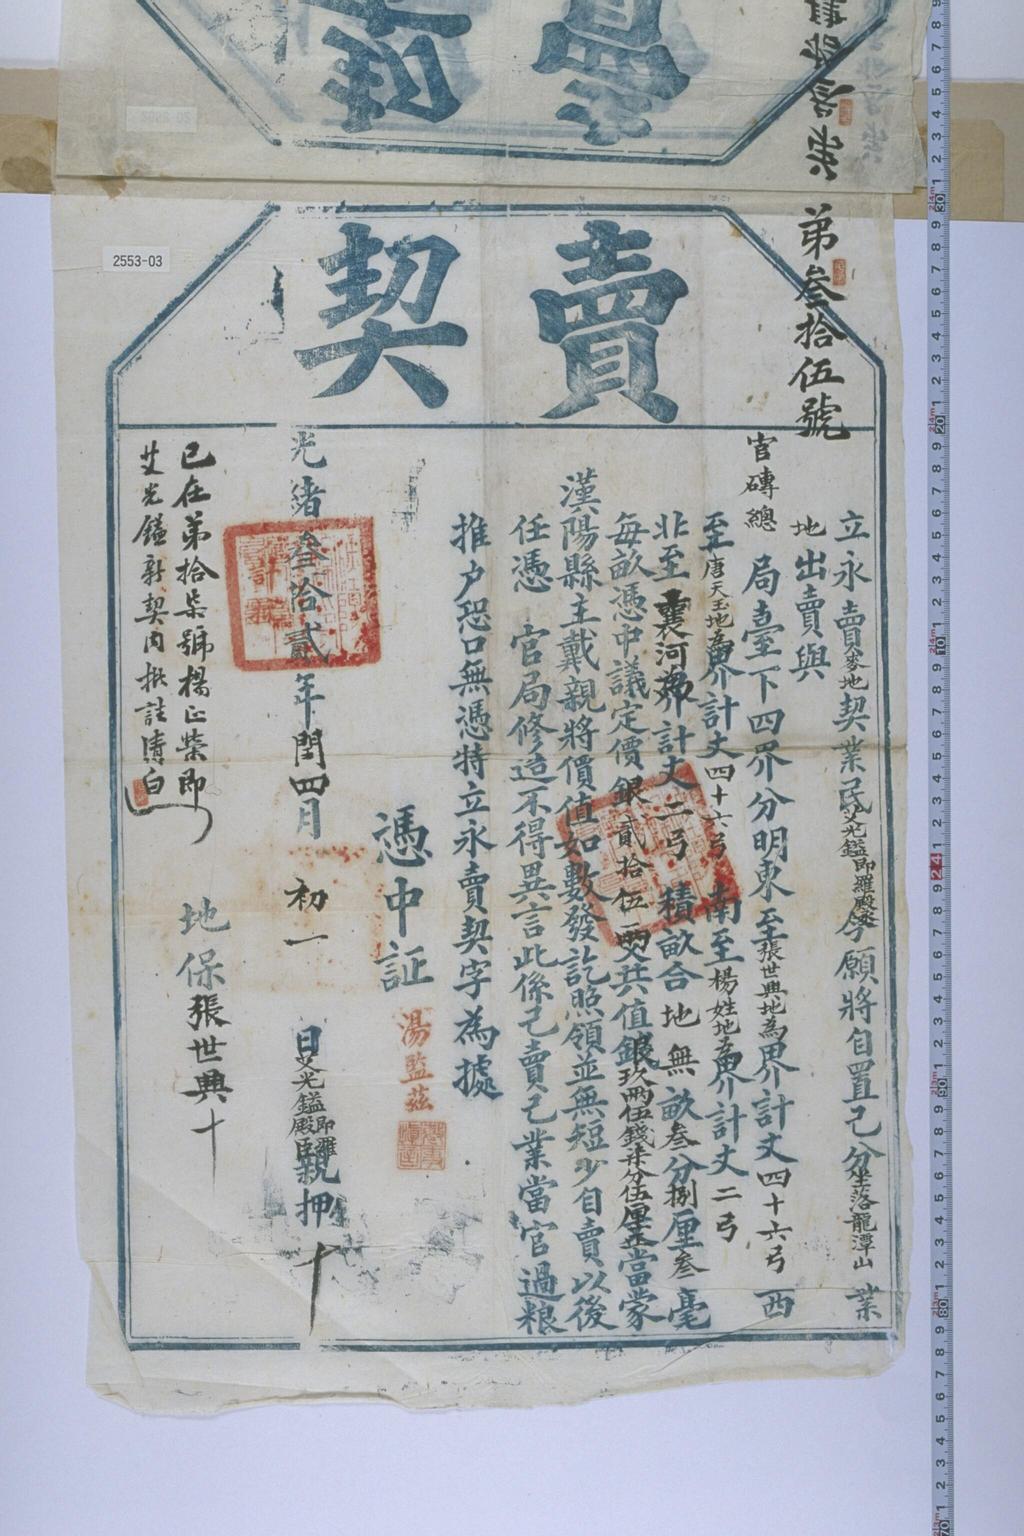 賣契
弟叁拾伍號
2553-03
立永賣麥地契業民艾光鎰即羅殿臣今願將自置己分坐落龍潭山業
地出賣與
官磚總局臺下四界分明東至張世興地為界計丈四十六弓西
至唐天玉地為界計丈四十六弓南至楊姓地為界計丈二弓
北至襄河為界計丈二弓積畝合地無畝叁分捌厘叁毫
每畝憑中議定價銀貳拾伍兩共值銀玖兩伍錢柒分伍厘正當蒙
漢陽縣主戴親將價值如數發訖照領並無短少自賣以後
任憑官局修造不得異言此係己賣己業當官過粮
推户恐口無憑特立永賣契字為據
憑中証湯監茲
光緒叁拾貳年閏四月初一日艾光鎰即羅殿臣親押十
地保張世興十
已在弟拾柒號楊正榮即
艾光鎰新契内批註清白